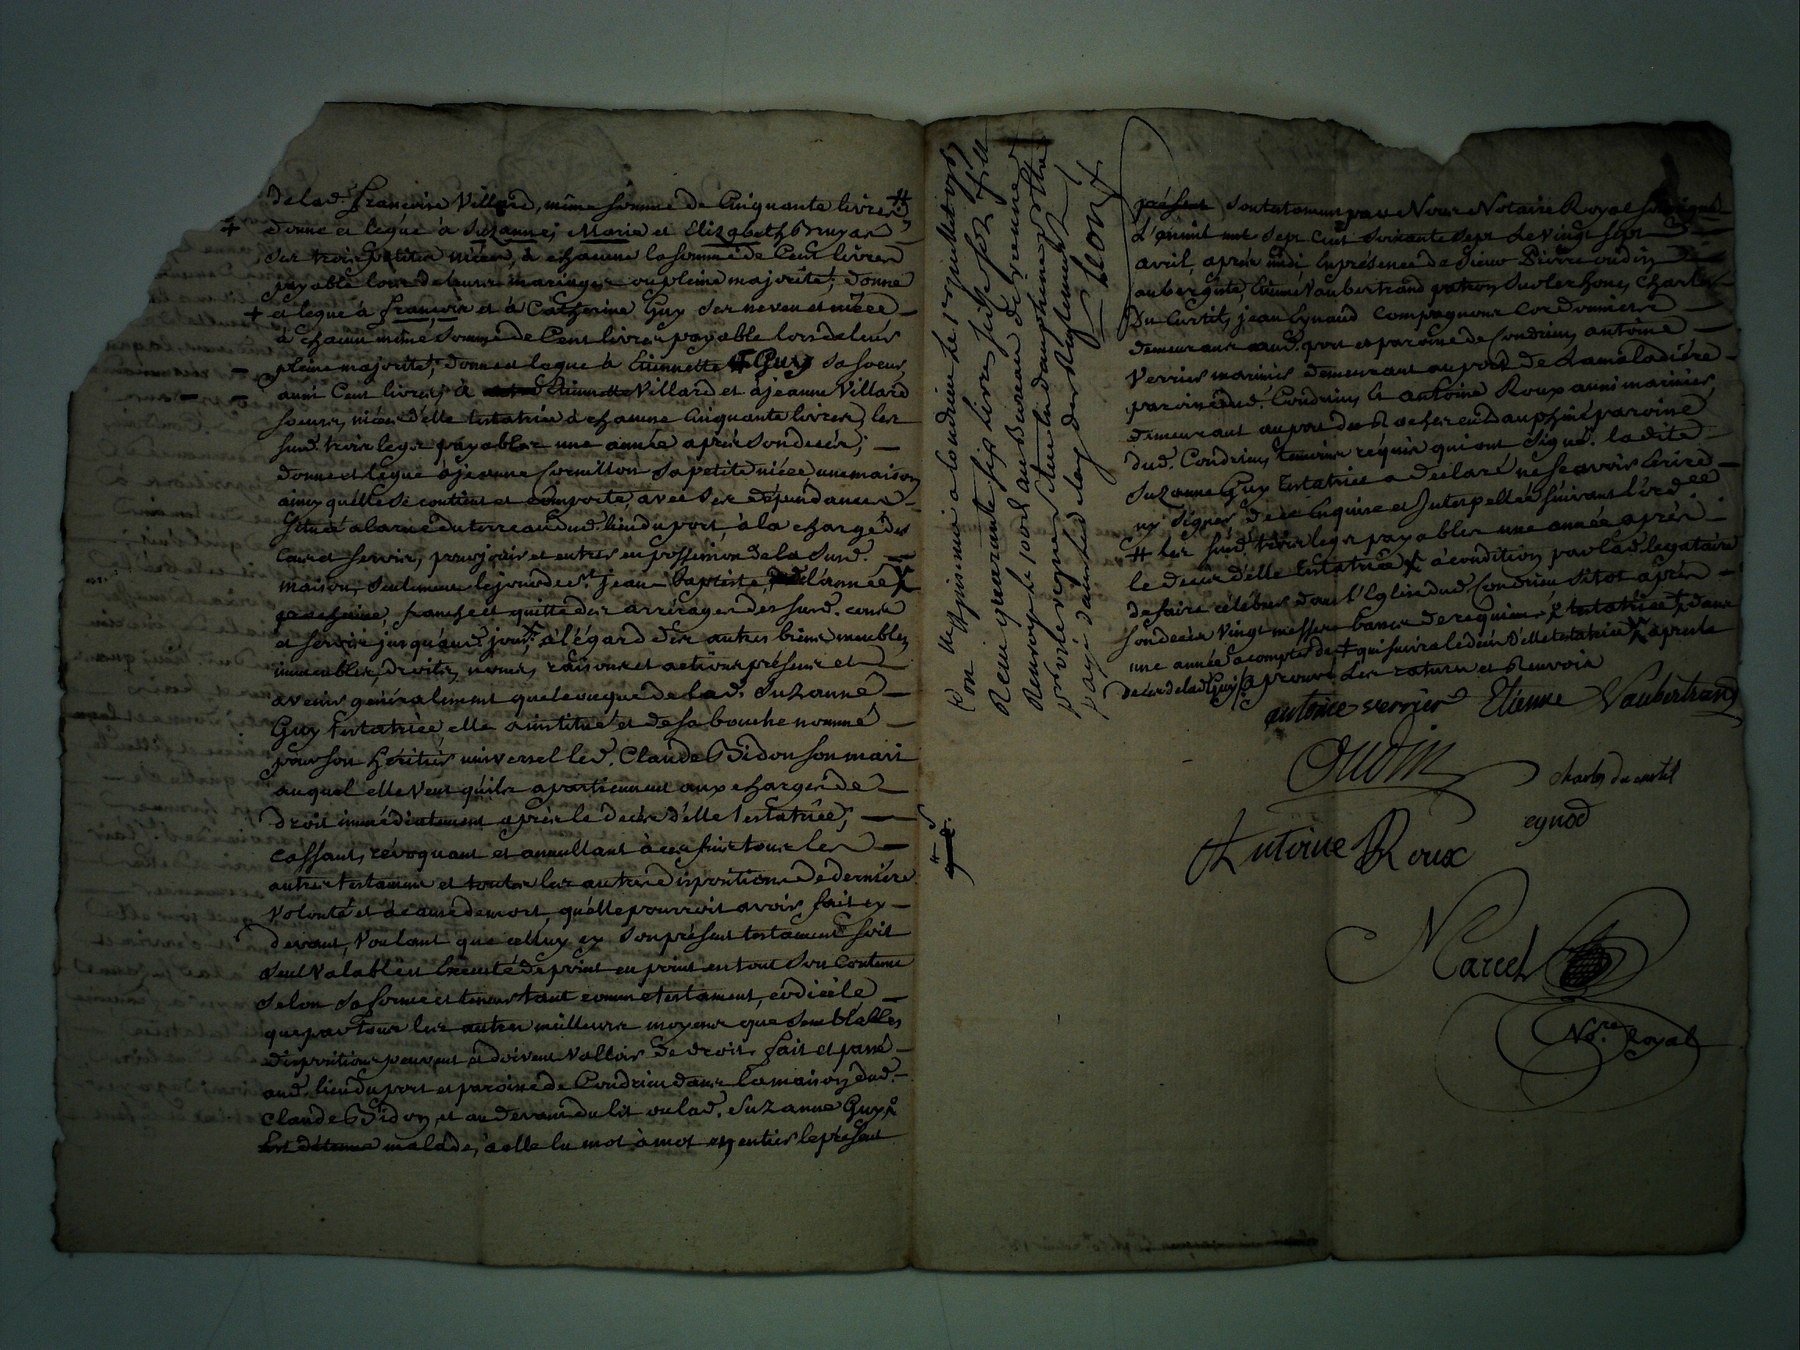 de lad. Françoise Villard, même somme de Cinquante livres #
+ donne et lègue à Suzanne, Marie et Elizabeth Bruyas
ses trois petites nièces, à chacune la somme de Cent livres
payable lors de leurs mariages ou pleine majorité; donne
+ et lègue à François et à Catherine Guy ses neveu et nièce
à chacun même somme de Cent livres payable lors de leurs
pleine majorité; donne et lègue à Etiennette Guy sa soeur,
aussi Cent livres; à Etiennette Villard et à Jeanne Villard
soeurs, nièces d'elle testatrice à chacune Cinquante livres, les
susd. trois legs payables une année après son decès;
donne et lègue à jeanne Cornillon sa petite nièce, une maison
ainsy qu'elle se contient et comporte, avec ses dépendances
située à la rue du terreau dud. lieu du port, à la charge des
cens et servis, pour jouir et entrer en possession de la susd.
maison, seulement le jour de st. jean Baptiste, l'année X
prochaine, franche et quitte des arrérages des susd. cens
et servis jusqu'aud. jour; à l'égard des autres biens meubles,
immeubles, droits, noms, raisons et actions présents et
avenir généralement quelconques de lad. Suzanne
Guy testatrice, elle a institué et de sa bouche nommé
pour son héritier universel led. Claude Gidon son mari
auquel elle veut qu'ils apartiennent aux charges de
droit immédiatement après le decès d'elle testatrice;
cassant, révoquant et annullant à ces fins tous les
autres testaments et toutes les autres dispositions de dernière
volonté et à cause de mort, qu'elle pourroit avoir fait cy
devant, voulant que celluy cy son présent testament soit
seul valable et exécuté de point en point en tout son contenu
selon sa forme et teneur tant comme testament, codicile
que par tous les autres meilleurs moyens que semblables
dispositions peuvent et doivent valloir de droit. fait et passé
aud. lieu du port et paroisse de Condrieu dans la maison dud.
Claude Gidon, et au devant du lit ou lad. Suzanne Guy
est détenue malade, à elle lu mot à mot en entier le présent
Con
a Condrieu le 1er juillet 1767
Recu quarante six livres
Renvoyé le 100e d. au Bureau de vienne
la province du dauphiné
payé
présent son testament par Nous Notaire Royal soussigné
L'an mil sept Cent soixante sept le vingt sept
avril, après midi en présence de sieur Pierre oudin
aubergiste, Etienne Vaubertrand patron sur le rhone, Charles
Du Curtil, jean Eynaud Compagnons Cordonniers
demeurans aud. port et paroisse de Condrieu, antoine
Verrier marinier demeurant au port de la maladière
paroisse dud. Condrieu, et antoine Roux aussi marinier,
demeurant au port du Rocher en dauphiné paroisse
dud. Condrieu, temoins réquis qui ont signé. la dite
Suzanne Guy testatrice a déclaré ne sçavoir écrire
ny signer de ce Enquise et Interpellée suivant l'ordce
# les susd. trois legs payables une année après
le decès d'elle testatrice X à condition par lad. legataire
de faire célébrer dans l'Eglise dud. Condrieu sitot après
son decès vingt messes basses de requiem X testatrice, dans
une année à compter de + qui suivra le decès d'elle testatrice X après le
decès de lad. Guy approuvé les ratures et Renvois
antoine verrier Etienne Vaubertrand
Oudin charles du curtil
eynod
Antoine Roux
Marcel
No.re Royal